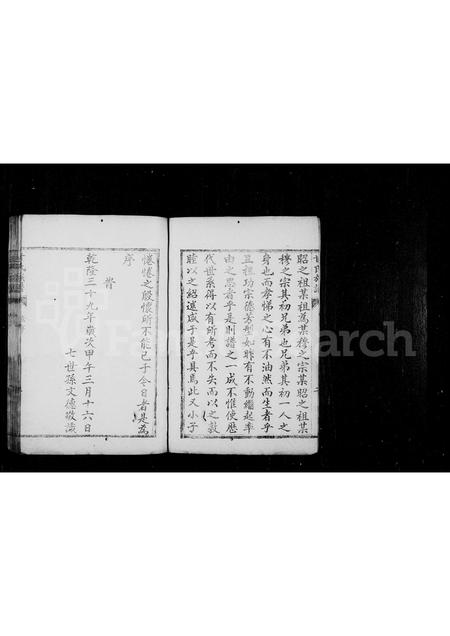 昭之祖某祖為某穆之宗某昭之祖某
穆之宗其初兄弟也兄弟其初一人之
身也而孝悌之心有不油然而生者乎
且祖功宗德芳型如昨有不動繼起率
由之思者乎是則譜之一成不惟使歷
代世系得以有所考而不失而以之敦
睦以之紹述咸于是乎具焉此又小子
惓惓之殷懷所不能已于今日者是為
序
旹
乾隆三十九年歲次甲午三月十六日
七世孫文德敬識
FamilySearch